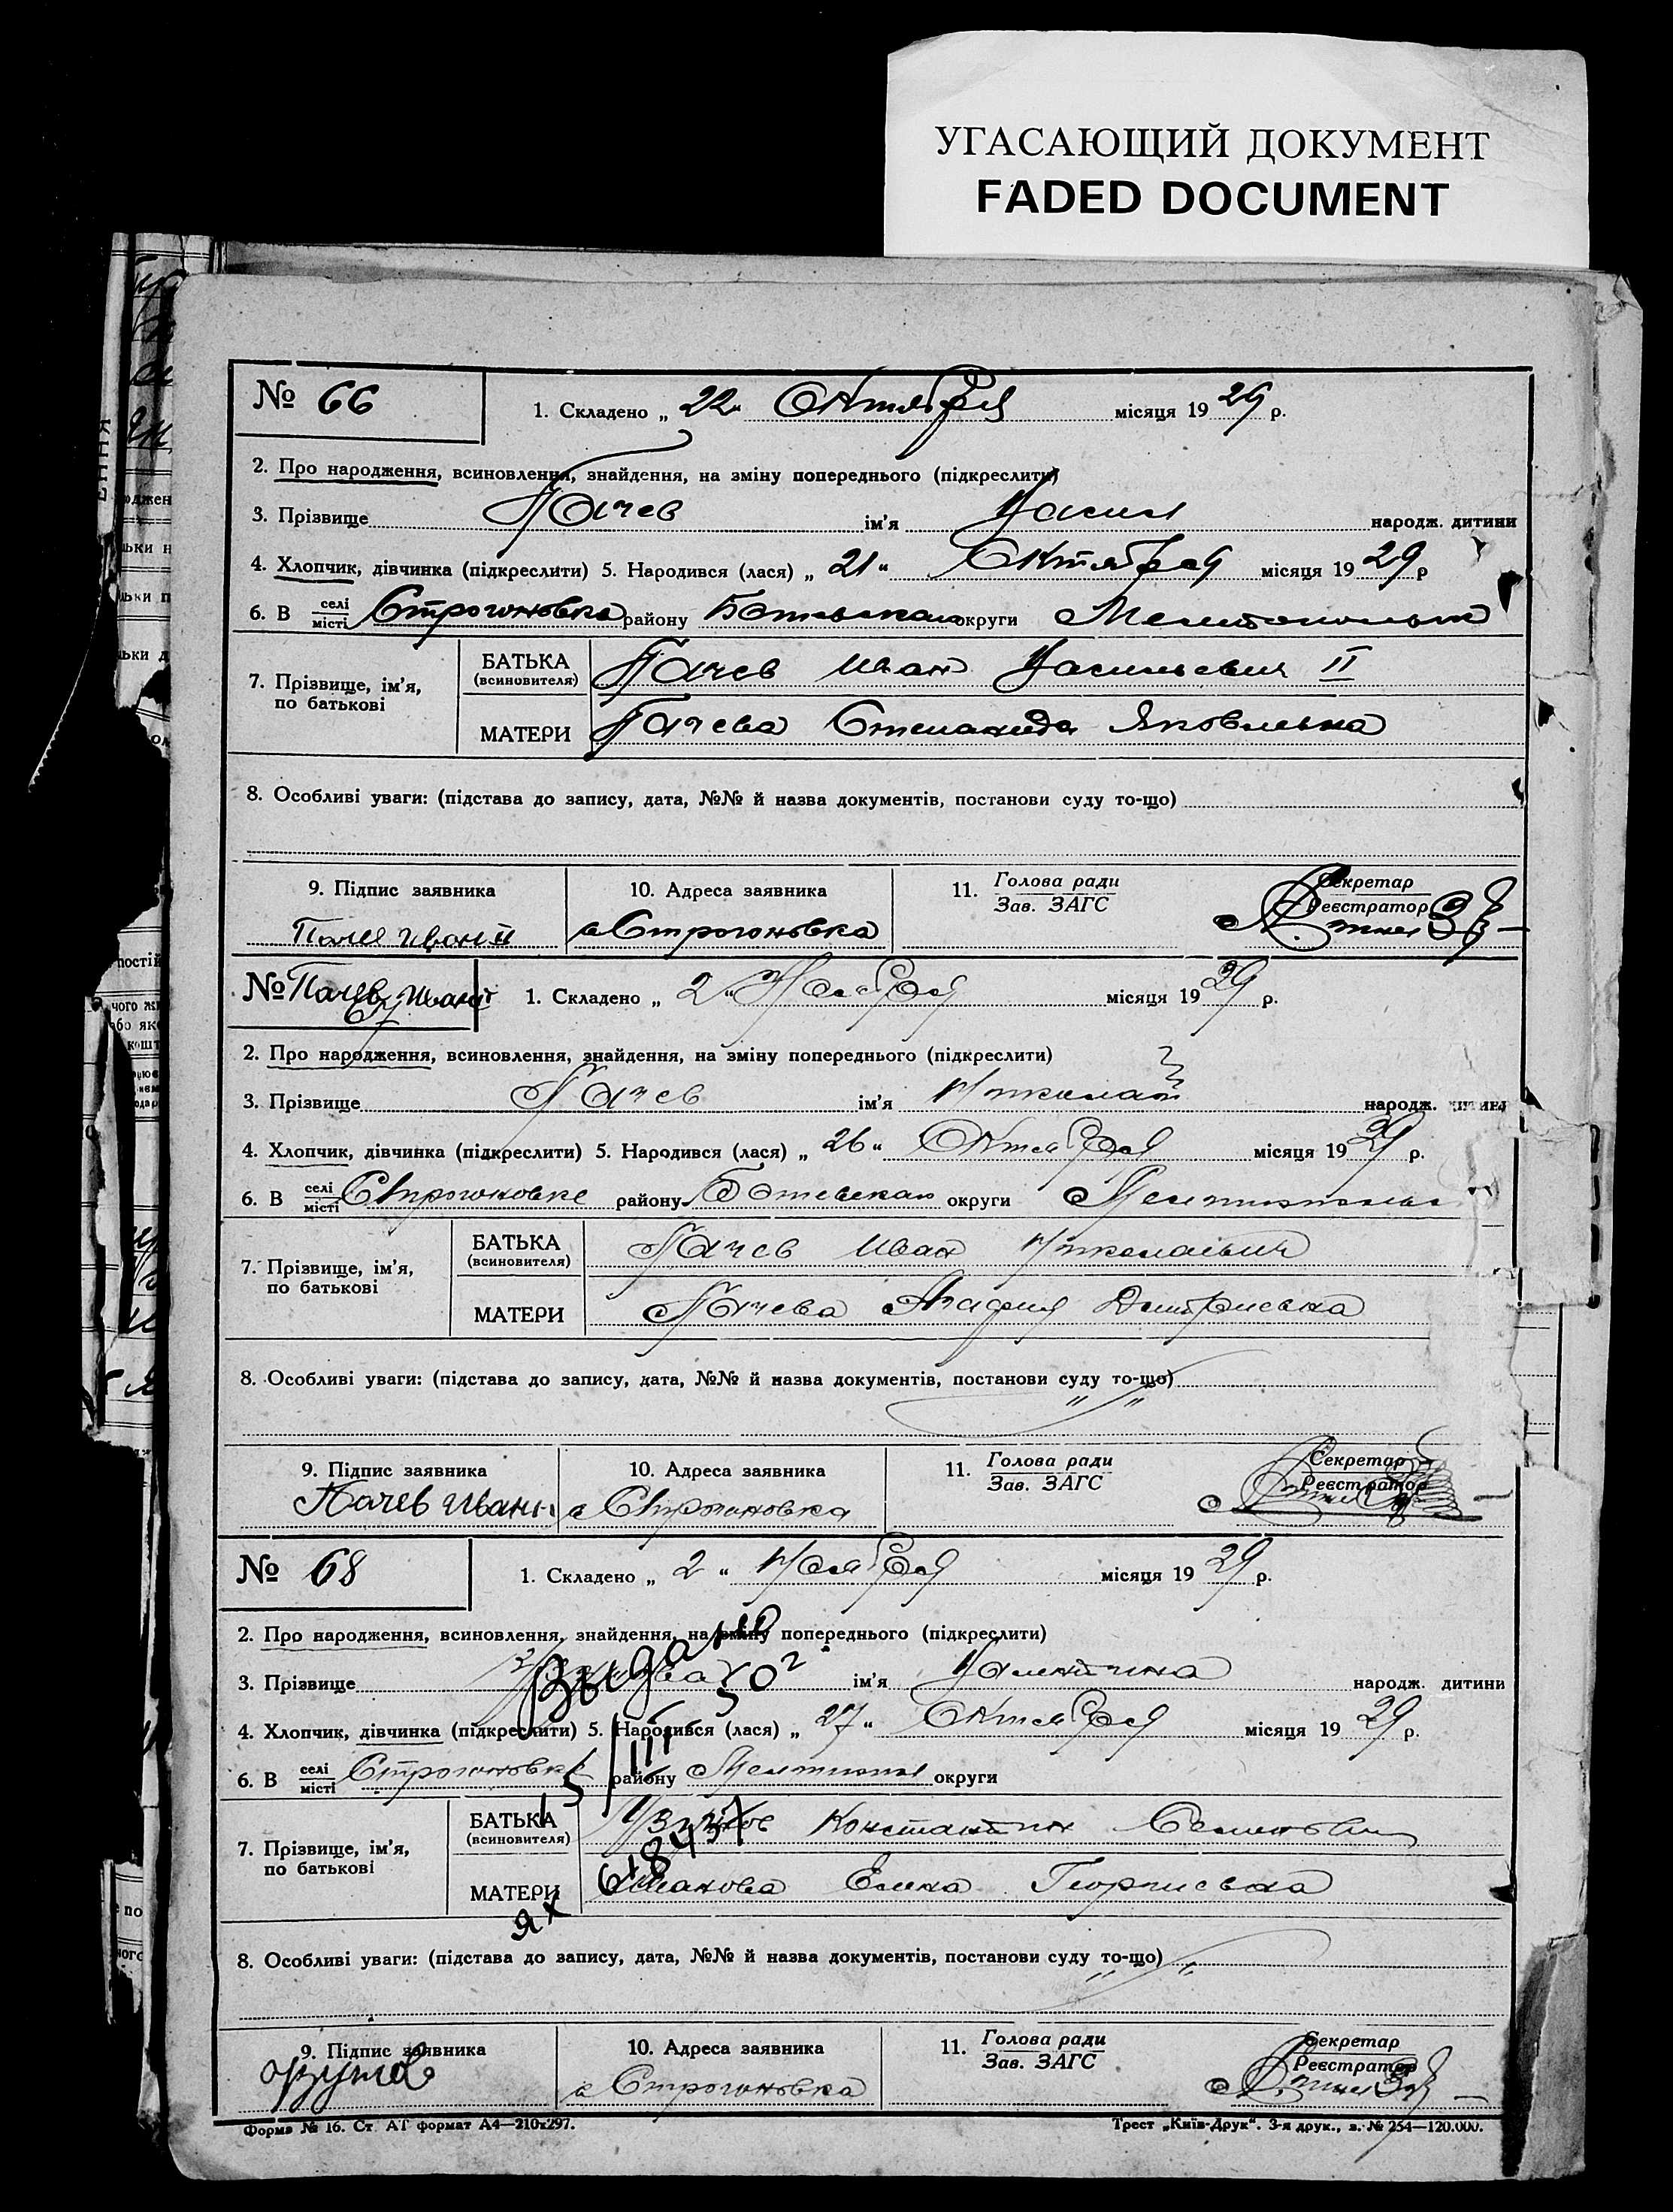 УГАСАЮЩИЙ ДОКУМЕНТ
FADED DOCUMENT
№ 66
1. Складено „ 22 “ Октября місяця 19 29 р.
2. Про народження, всиновлення, знайдення, на зміну попереднього (підкреслити)
3. Прізвище Пачев ім'я Васил народж. дитини
4. Хлопчик, дівчинка (підкреслити) 5. Народився (лася) „ 21 “ Октября місяця 19 29 р
6. В селі місті Строгоновка району округи
7. Прізвище, ім'я, по батькові
БАТЬКА (всиновителя) Пачев Иван Васильевич II
МАТЕРИ Пачева Степанида Яковлевна
8. Особливі уваги: (підстава до запису, дата, №№ й назва документів, постанови суду то-що)
9. Підпис заявника
10. Адреса заявника
11. Голова ради Зав. ЗАГС
Секретар Реєстратор
Иван II
с Строгоновка
№ Пачев Иван
67
1. Складено „ 2 “ Ноября місяця 19 29 р.
2. Про народження, всиновлення, знайдення, на зміну попереднього (підкреслити)
3. Прізвище Пачев ім'я Николай народж.
4. Хлопчик, дівчинка (підкреслити) 5. Народився (лася) „ 26 “ Октября місяця 19 29 р.
6. В селі місті Строгоновке району округи
7. Прізвище, ім'я, по батькові
БАТЬКА (всиновителя) Пачев Иван Николаевич
МАТЕРИ Пачева
8. Особливі уваги: (підстава до запису, дата, №№ й назва документів, постанови суду то-що)
" "
9. Підпис заявника
10. Адреса заявника
11. Голова ради Зав. ЗАГС
Секретар Реєстратор
Пачев Иван
с Строгоновка
№ 68
1. Складено „ 2 “ Ноября місяця 19 29 р.
2. Про народження, всиновлення, знайдення, на зміну попереднього (підкреслити)
3. Прізвище ім'я Валентина народж. дитини
4. Хлопчик, дівчинка (підкреслити) 5. Народився (лася) „ 27 “ Октября місяця 19 29 р.
6. В селі місті Строгоновке району округи
7. Прізвище, ім'я, по батькові
БАТЬКА (всиновителя) Узунов Константин Семенович
МАТЕРИ Елена Георгиевна
8. Особливі уваги: (підстава до запису, дата, №№ й назва документів, постанови суду то-що)
" "
9. Підпис заявника
10. Адреса заявника
11. Голова ради Зав. ЗАГС
Секретар Реєстратор
с Строгоновка
Форма № 16. Ст. АТ формат А4—210х297.
Трест „Київ-Друк“. 3-я друк., з. № 254—120.000.